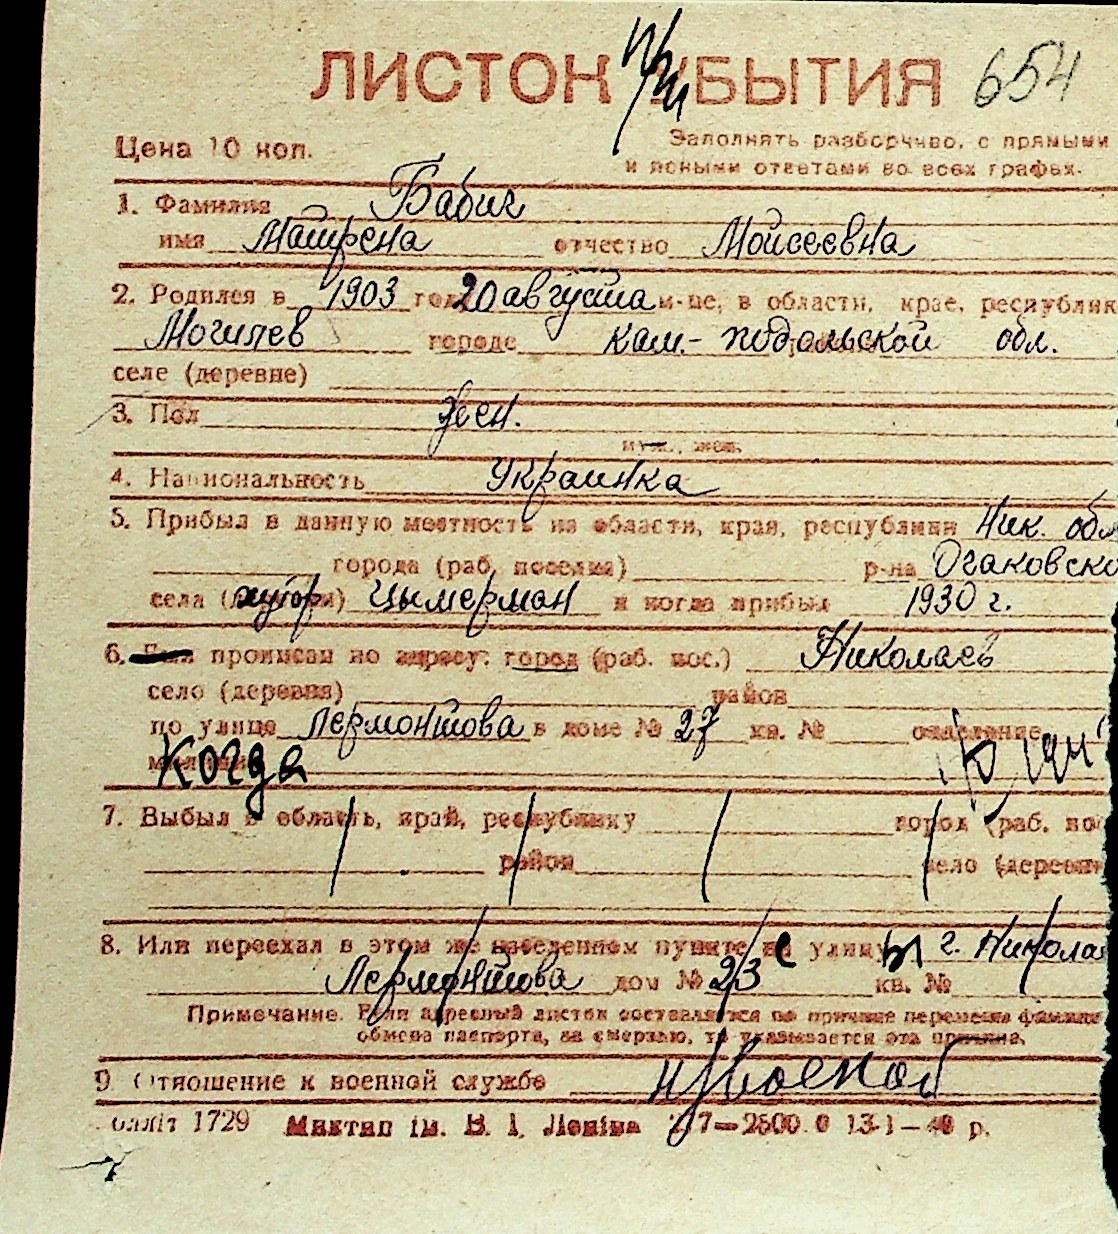 ЛИСТОК ПриБЫТИЯ 654
Цена 10 коп.
Заполнять разборчиво, с прямыми
и ясными ответами во всех графах.
1. Фамилия Бабич
имя Матрена отчество Моисеевна
2. Родился в 1903 году 20 августа м-це, в области, крае, республик
Могилев городе Кам.-Подольской обл.
селе (деревне)
3. Пол жен.
муж., жен.
4. Национальность Украинка
5. Прибыл в данную местность из области, края, республики Ник. обл
города (раб. поселка) р-на Очаковско
села хутор Цымерман и когда прибыл 1930 г.
6. прописан по адресу: город (раб. пос.) Николаев
село (деревня) район
по улице Лермонтова в доме № 27 кв. № отделение
Когда
7. Выбыл в область, край, республику город (раб. пос
район село (деревня
8. Или переехал в этом же населенном пункте с улицы г. Никола
Лермонтова дом № 23 кв. №
Примечание. Если адресный листок составляется по причине перемены фамилии
обмена паспорта, за смертью, то указывается эта причина.
9. Отношение к военной службе
1729 Миктип ім. В. І. Леніна 7—2500 0 13-1—40 р.